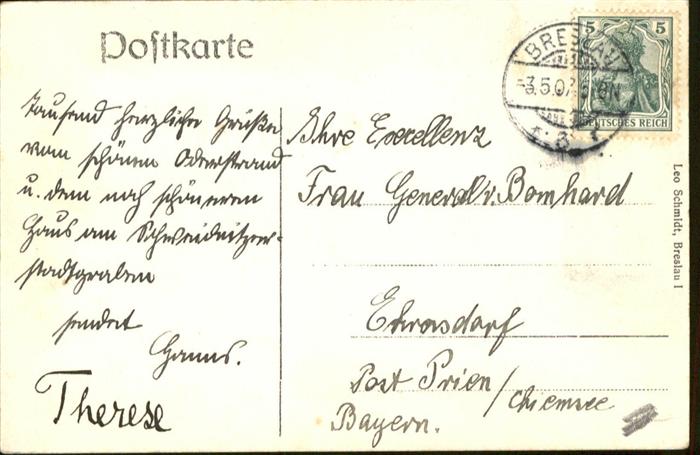 Postkarte
Tausend herzliche Grüße
vom schönen Oderstrand
u. dem noch schöneren
Haus am Schweidnitzer-
stadtgraben
sendet
Hanns.
Therese
BRESLAU
-3.5.07. 6-8N
* 8 r
5 5
DEUTSCHES REICH
Ihre Excellenz
Frau General v. Bomhard
Post Prien / Chiemsee
Bayern.
Leo Schmidt, Breslau I